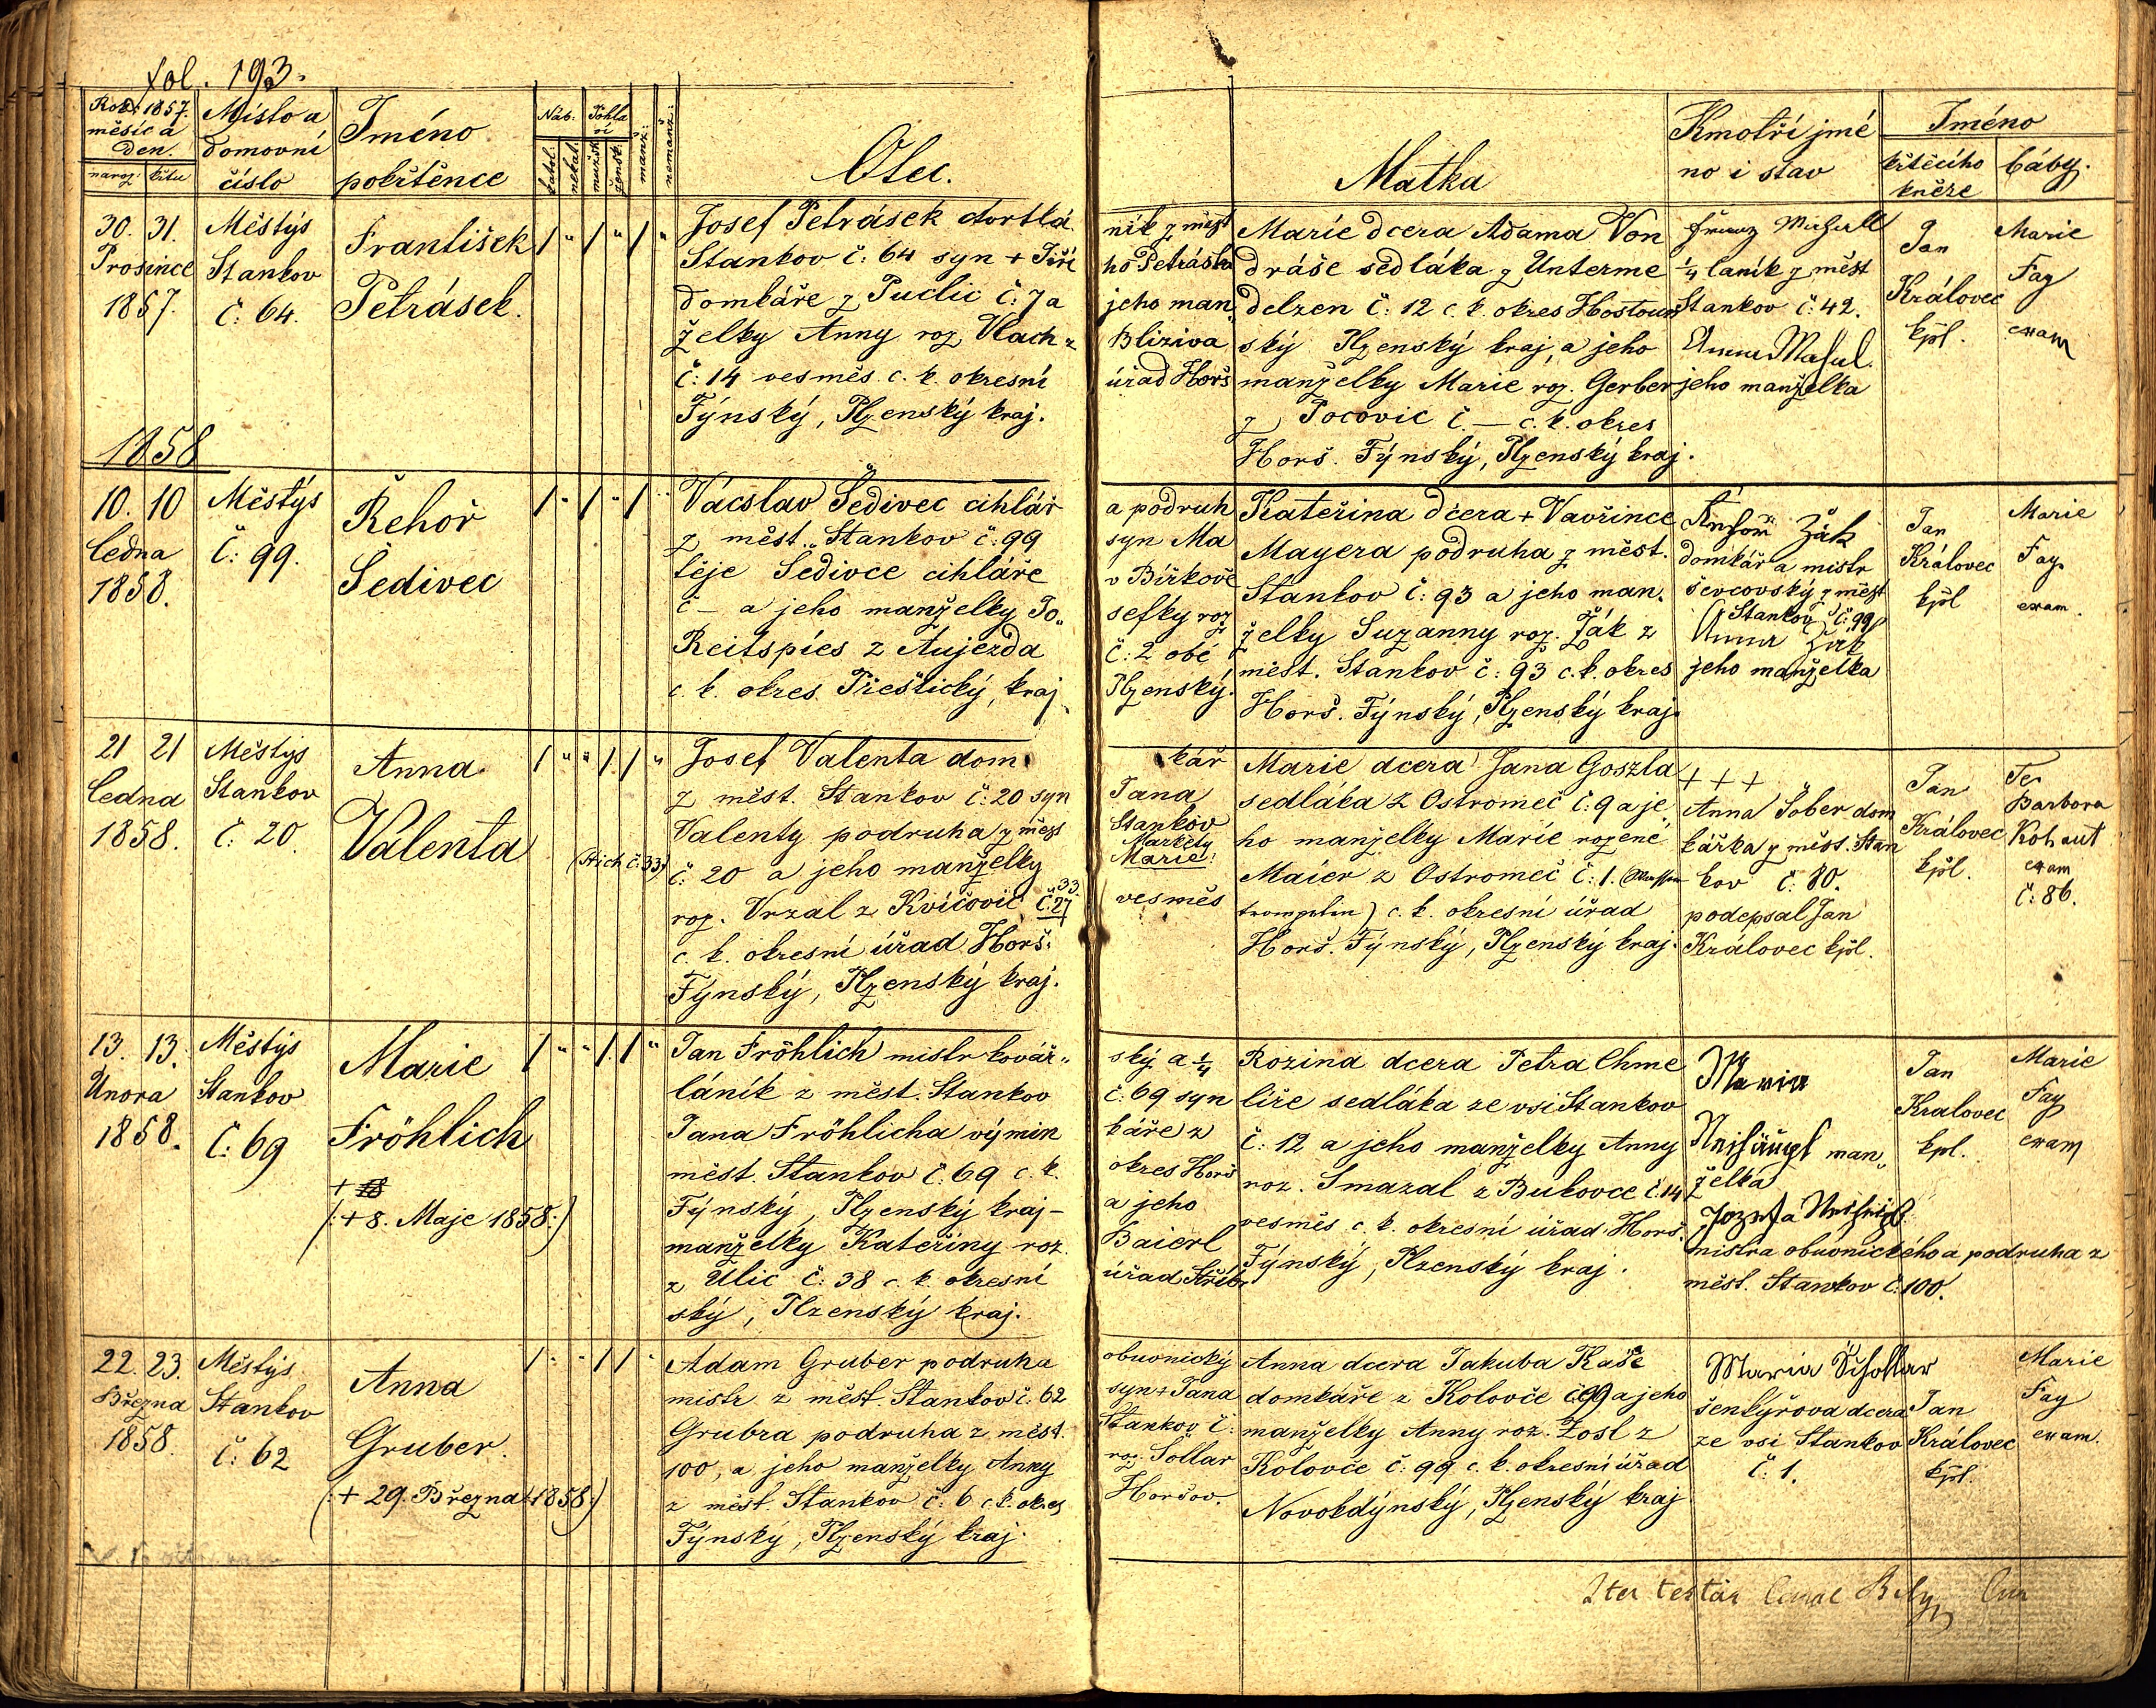 fol. 193.
Rok 1857.
měsíc a
den.
naroz. křtu
Místo a
domovní
číslo
Jméno
pokřtěnce
Náb.
katol.
nekat.
Pohla
ví
mužsk.
žensk.
manž.
nemanž.
Otec.
Matka
Kmotři jmé
no i stav
Jméno
křtícího
kněze
báby.
30. 31.
Prosince
1857.
Městýs
Stankov
č: 64.
František
Petrásek.
/ " / " / "
Josef Petrásek dortlá
Stankov č: 64 syn + Jiří
domkáře z Puclic č: 7 a
želky Anny roz. Vlach z
č: 14 vesměs c. k. okresní
Týnský, Plzenský kraj.
ník z měst
ho Petráska
jeho man.
Bliziva
úřad Horš
Marie dcera Adama Von
dráše sedláka z Unterme
delzen č: 12 c. k. okres Hostoun
ský Plzenský kraj, a jeho
manželky Marie roz. Gerber
z Pocovic č. — c. k. okres
Horš. Týnský, Plzenský kraj.
Franz
¼ laník z měst
Stankov č: 42.
Anna
jeho manželka
Jan
Královec
kpl.
Marie
Fay
exam
1858
10. 10
ledna
1858.
Městýs
č: 99.
Řehoř
Šedivec
/ " / " / "
Vácslav Šedivec cihlář
z měst. Stankov č: 99
těje Šedivce cihláře
č — a jeho manželky Jo„
Reitspies z Aujezda
c. k. okres Přeštický, kraj
a podruh
syn Ma
v Bířkově
sefky roz
č: 2 obé
Plzenský.
Kateřina dcera + Vavřince
Mayera podruha z měst.
Stankov č: 93 a jeho man.
želky Suzanny roz. Žák z
měst. Stankov č: 93 c. k. okres
Horš. Týnský, Plzenský kraj.
Žák
domkář a mistr
ševcovský z měst
Stankov č: 99
Anna Žák
jeho manželka
Jan
Královec
kpl
Marie
Fay
exam.
21 21
ledna
1858.
Městýs
Stankov
č: 20.
Anna
Valenta
/ " " / / "
(Stich č: 33)
Josef Valenta dom
z měst. Stankov č: 20 syn
Valenty podruha z měst
č: 20 a jeho manželky
33.
roz. Vrzal z Kvíčovic č. 27
c. k. okresní úřad Horš.
Týnský, Plzenský kraj.
kář
Jana
Stankov
Markéty
Marie!
vesměs
Marie dcera Jana Goszla
sedláka z Ostromeč č: 9 a je
ho manželky Marie rozené
Maier z Ostromeč č: 1.
c. k. okresní úřad
Horš. Týnský, Plzenský kraj.
+ + +
Anna Šober dom
kářka z měst. Stan
kov č: 80.
podepsal Jan
Královec kpl.
Jan
Královec
kpl.
Barbora
Kohaut
exam
č: 86.
13. 13.
Února
1858.
Městýs
Stankov
č: 69
Marie
Fröhlich
+ 18
(: + 8. Maje 1858 :)
/ " " / / "
Jan Fröhlich mistr kovář„
láník z měst. Stankov
Jana Fröhlicha výmin
měst. Stankov č. 69 c. k.
Týnský, Plzenský kraj —
manželky Kateřiny roz.
z Ulic č: 38 c. k. okresní
ský, Plzenský kraj.
ský a ¼
č: 69 syn
káře z
okres Horš
a jeho
Baierl
úřad Stříbr
Rozina dcera Petra Chme
líře sedláka ze vsi Stankov
č: 12 a jeho manželky Anny
roz. Smazal z Bukovce č. 14
vesměs c. k. okresní úřad Horš.
Týnský, Plzenský kraj.
Maria
Neihäupl man„
želka
Jozefa
mistra obuvnického a podruha z
měst. Stankov č: 100.
Jan
Kralovec
kpl.
Marie
Fay
exam
22. 23.
Března
1858.
Městýs
Stankov
č: 62
Anna
Gruber.
(: + 29. Března 1858 :)
/ " " / / "
Adam Gruber podruha
mistr z měst. Stankov č: 62
Grubra podruha z měst.
100, a jeho manželky Anny
z měst. Stankov č: 6 c. k. okres
Týnský, Plzenský kraj.
obuvnický
syn + Jana
Stankov č:
roz. Sollar
Horšov.
Anna dcera Jakuba Kaše
domkáře z Kolovče č 99 a jeho
manželky Anny roz. Zosl z
Kolovče č: 99 c. k. okresní úřad
Novokdýnský, Plzenský kraj
Maria
šenkýřova dcera
ze vsi Stankov
č: 1.
Jan
Královec
kpl.
Marie
Fay
exam.